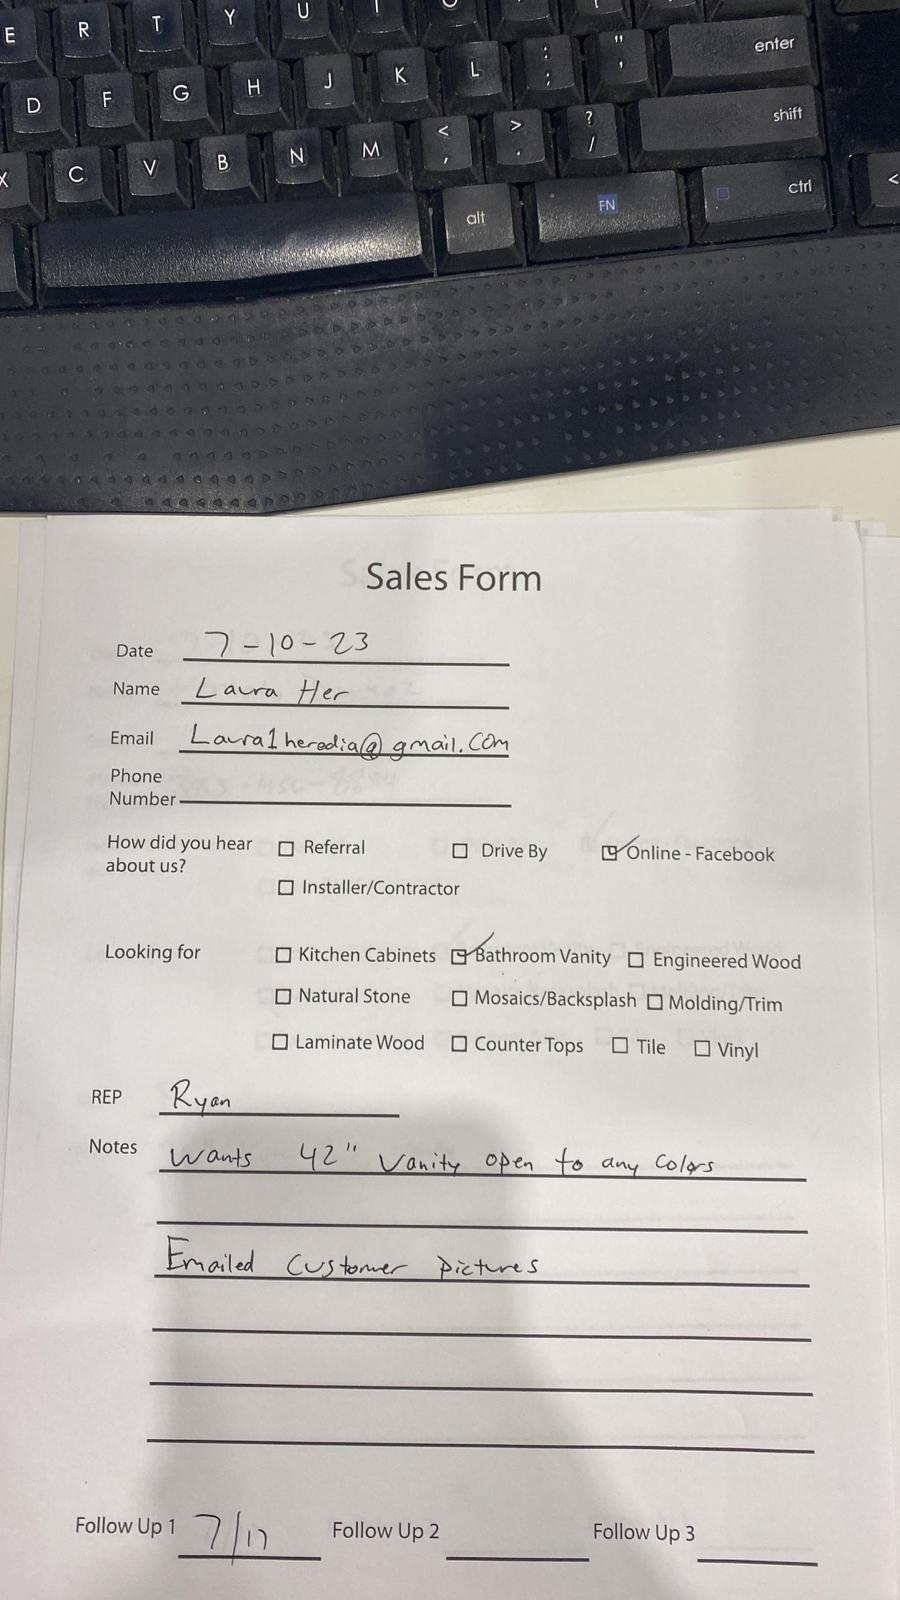 E R T Y U I O
D F G H J K L : ; " ' enter
X C V B N M < , > . ? / shift
alt FN ctrl <
Sales Form
Date 7-10-23
Name Laura Her
Email Laura1heredia@gmail.com
Phone
Number
How did you hear about us? Referral Drive By Online - Facebook
Installer/Contractor
Looking for Kitchen Cabinets Bathroom Vanity Engineered Wood
Natural Stone Mosaics/Backsplash Molding/Trim
Laminate Wood Counter Tops Tile Vinyl
REP Ryan
Notes Wants 42" Vanity open to any colors
Emailed Customer pictures
Follow Up 1 7/17 Follow Up 2 Follow Up 3